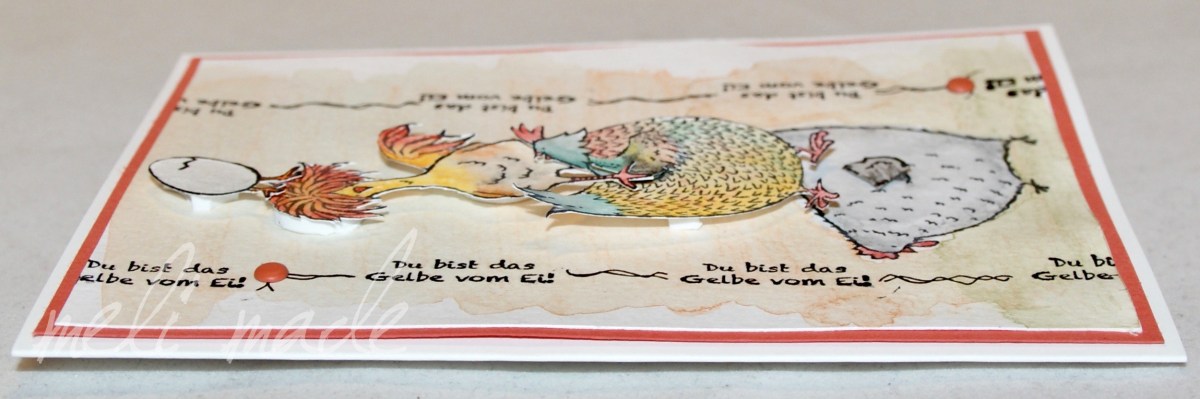 Du bist das
Gelbe vom Ei!
Du bist das
Gelbe vom Ei!
Du bis
Du bist das
elbe vom Ei!
Du bist das
Gelbe vom Ei!
Du bist das
Gelbe vom Ei!
Du bi
Gelbe
meli made